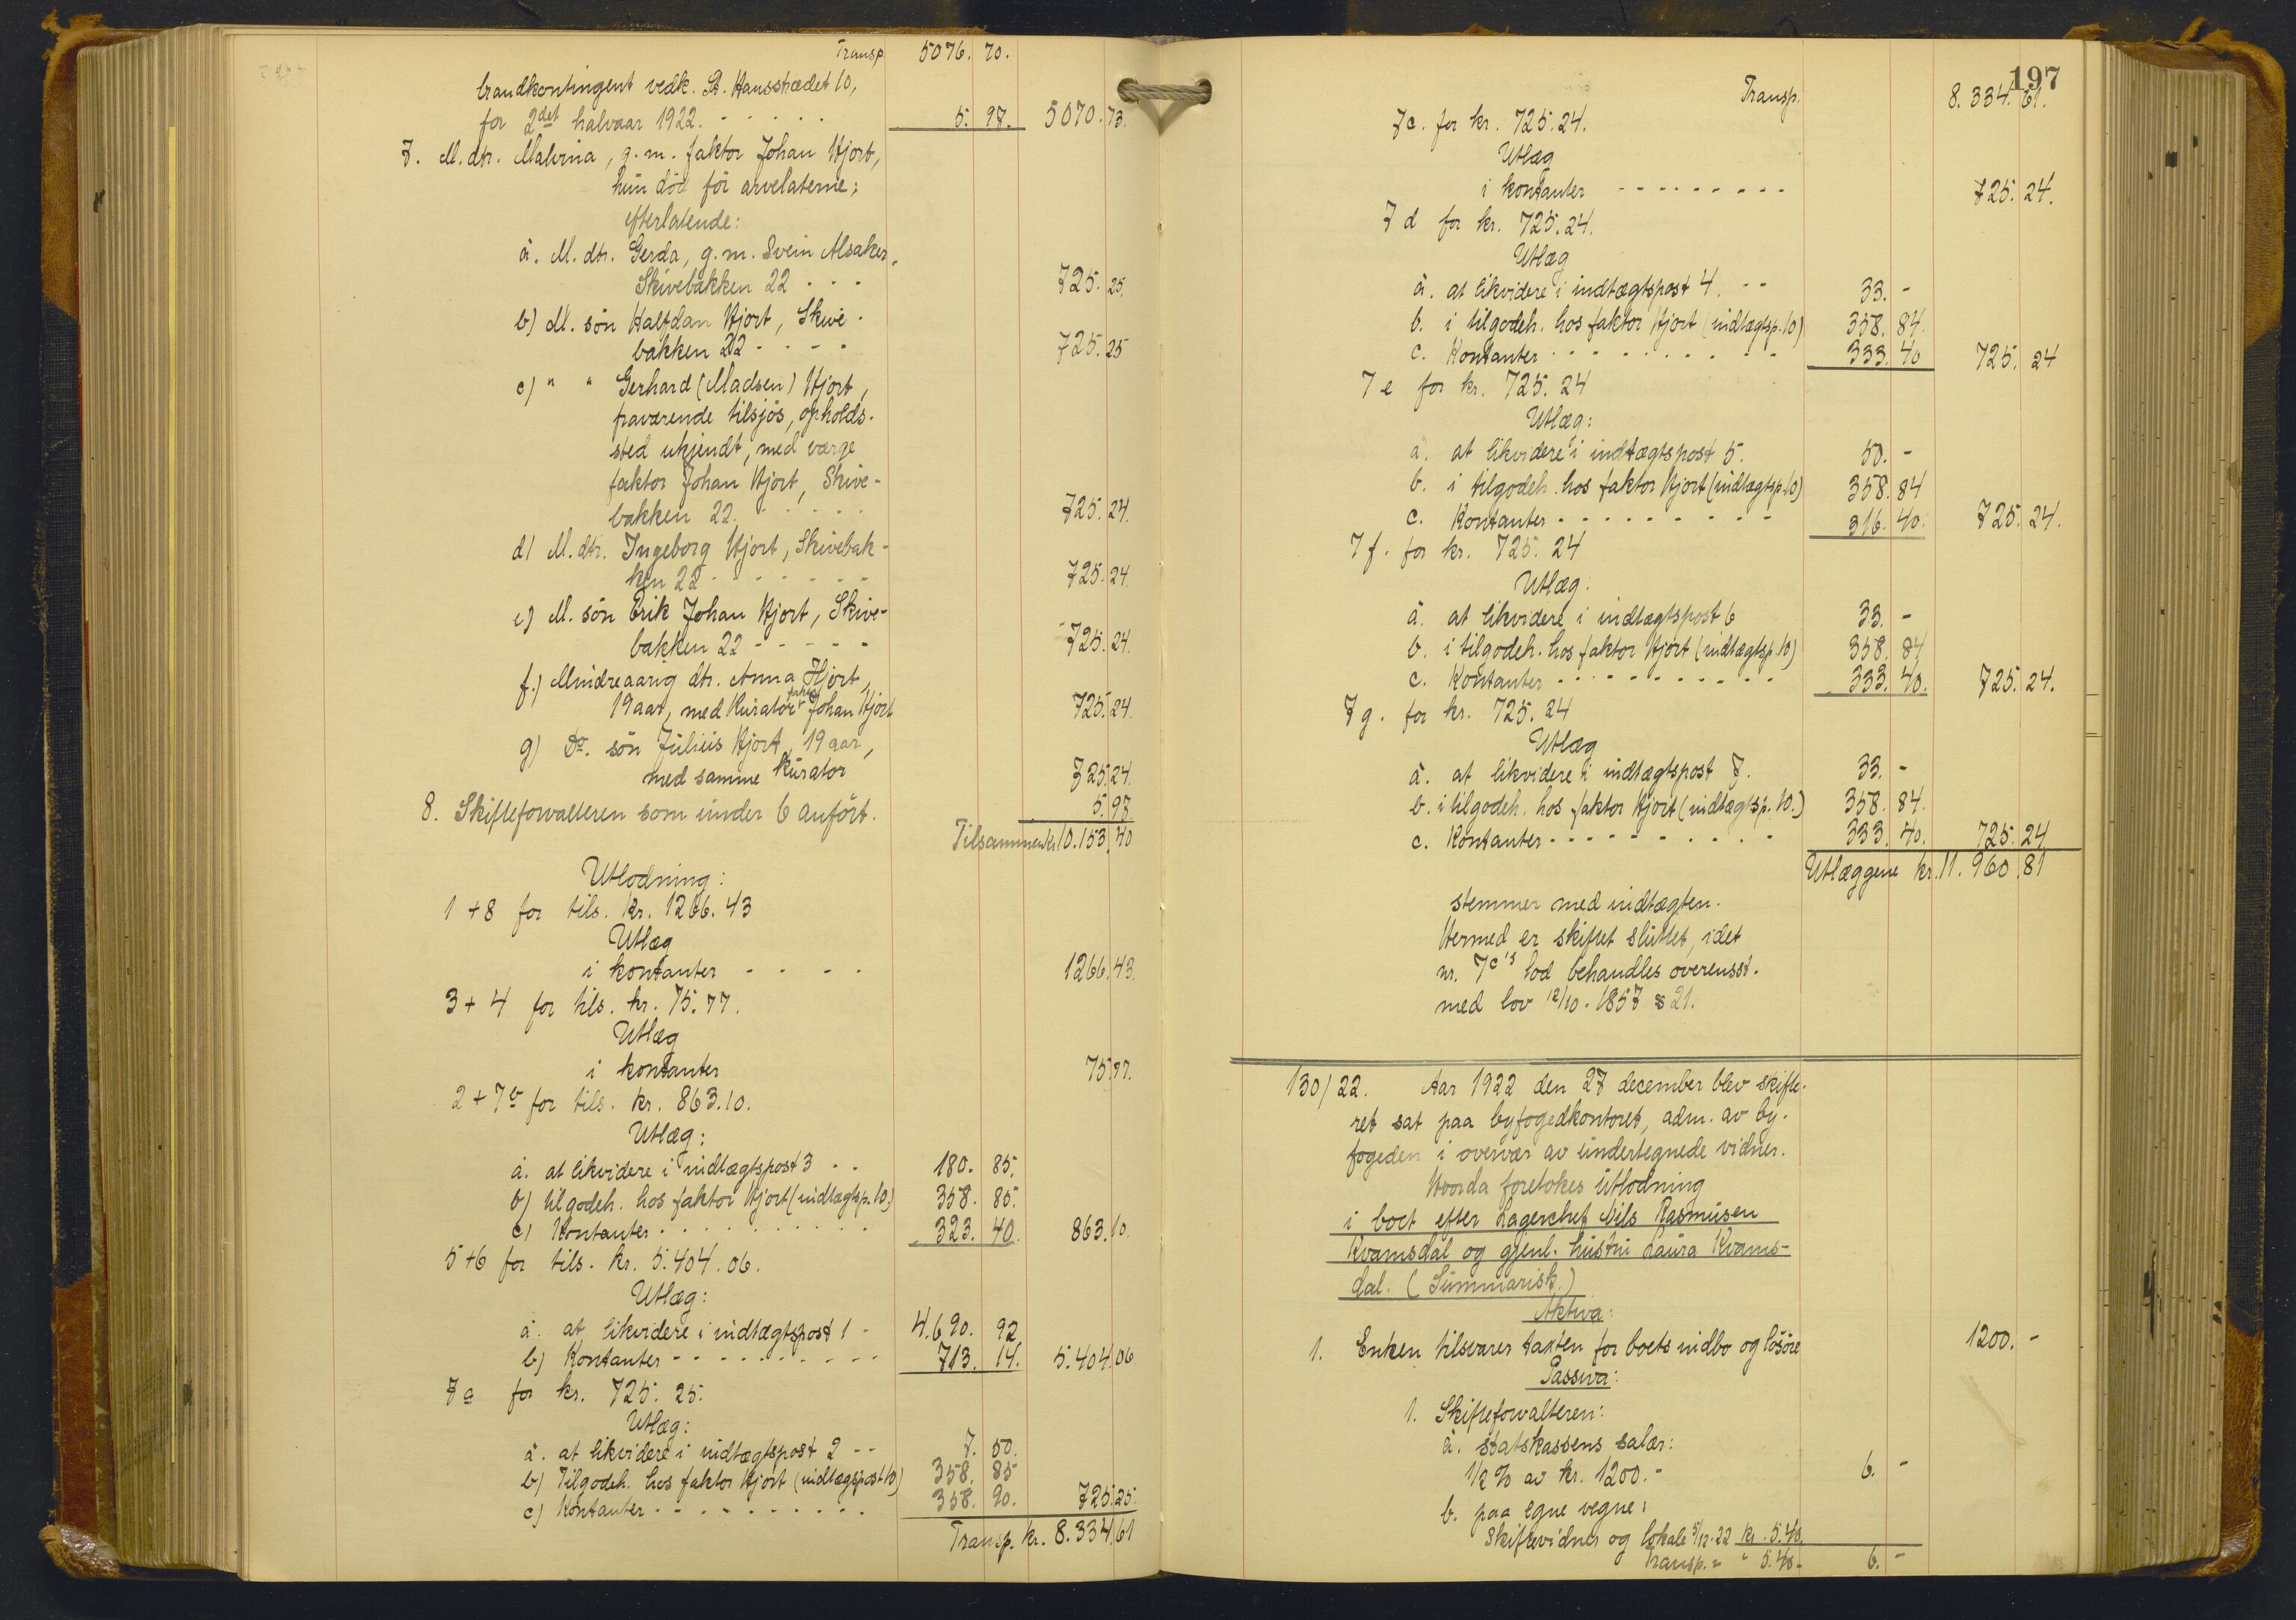 Transp. 5076. 70.
brandkontingent vedk. St. Hansstrædet 10,
for 2det halvaar 1922. - - - - - 5. 97. 5070. 73.
7. M. dtr. Malvina, g. m. faktor Johan Hjort,
hun död för arvelaterne;
efterlatende:
a. M. dtr. Gerda, g. m. Svein Alsaker,
Skivebakken 22 - - - 725. 25.
b) M. sön Halfdan Hjort, Skive-
bakken 22 - - - - 725. 25
c) " " Gerhard (Madsen) Hjort,
fraværende tilsjös, opholds-
sted ukjendt, med værge
faktor Johan Hjort, Skive-
bakken 22. - - - - - 725. 24.
d) M. dtr. Ingeborg Hjort, Skivebak-
ken 22 - - - - - - - 725. 24.
e) M. sön Erik Johan Hjort, Skive-
bakken 22 - - - - - 725. 24.
f.) Mindreaarig dtr. Anna Hjort,
19 aar, med Kurator faktor Johan Hjort 725. 24.
g) Do. sön Julius Hjort, 19 aar,
med samme Kurator 725. 24.
8. Skifteforvalteren som under 6 anfört. 5. 97
Tilsammen kr. 10.153. 40
Utlodning:
1 + 8 for tils. Kr. 1266. 43
Utlæg
i kontanter - - - - 1266. 43.
3 + 4 for tils. kr. 75. 77.
Utlæg
i kontanter 75. 77.
2 + 7b for tils. kr. 863. 10.
Utlæg:
a. at likvidere i indtægtspost 3 - - 180. 85.
b) tilgodeh. hos faktor Hjort (indtægtsp. 10.) 358. 85.
c) Kontanter - - - - - - - - - 323. 40. 863. 10.
5 + 6 for tils. kr. 5.404. 06.
Utlæg:
a. at likvidere i indtægtspost 1 - 4.690. 92
b) Kontanter - - - - - - - - - 713. 14. 5.404. 06
7a for kr. 725. 25.
Utlæg:
a. at likvidere i indtægtspost 2 - - 7. 50.
b) Tilgodeh. hos faktor Hjort (indtægtspost 10) 358. 85
c) Kontanter - - - - - - - - - 358. 90. 725. 25.
Transp. kr. 8.334. 61
197
Transp. 8.334. 61.
7c. for kr. 725. 24.
Utlæg
i kontanter - - - - - - - - - 725. 24.
7 d for kr. 725. 24.
Utlæg
a. at likvidere i indtægtspost 4. - - 33. -
b. i tilgodeh. hos faktor Hjort (indtægtsp. 10) 358. 84.
c. Kontanter - - - - - - - - - - 333. 40 725. 24
7 e for kr. 725. 24
Utlæg:
a. at likvidere i indtægtspost 5. 50. -
b. i tilgodeh. hos faktor Hjort (indtægtsp. 10) 358. 84
c. Kontanter - - - - - - - - - 316. 40. 725. 24.
7 f. for kr. 725. 24
Utlæg:
a. at likvidere i indtægtspost 6 33. -
b. i tilgodeh. hos faktor Hjort (indtægtsp. 10) 358. 84
c. Kontanter - - - - - - - - - - 333. 40. 725. 24.
7 g. for kr. 725. 24
Utlæg
a. at likvidere i indtægtspost 7. 33. -
b. i tilgodeh. hos faktor Hjort (indtægtsp. 10.) 358. 84.
c. Kontanter - - - - - - - - - 333. 40. 725. 24
Utlæggene kr. 11. 960. 81
stemmer med indtægten.
Hermed er skiftet sluttet, idet
nr. 7c's lod behandles overensst.
med lov 12/10 - 1857 § 21.
130/22. Aar 1922 den 27 december blev skifte-
ret sat paa byfogedkontoret, adm. av by-
fogeden i overvær av undertegnede vidner.
Hvorda foretokes utlodning
i boet efter Lagerchef Nils Rasmusen
Kvamsdal og gjenl. hustru Laura Kvams-
dal. (Summarisk.)
Aktiva:
1. Enken tilsvarer taxten for boets indbo og lösöre 1200. -
Passiva:
1. Skifteforvalteren:
a. statskassens salær:
1/2 % av kr. 1200. - 6. -
b. paa egne vegne:
Skiftevidner og lokale 5/12-22 kr. 5.40.
Transp. " " 5.40. - 6. -